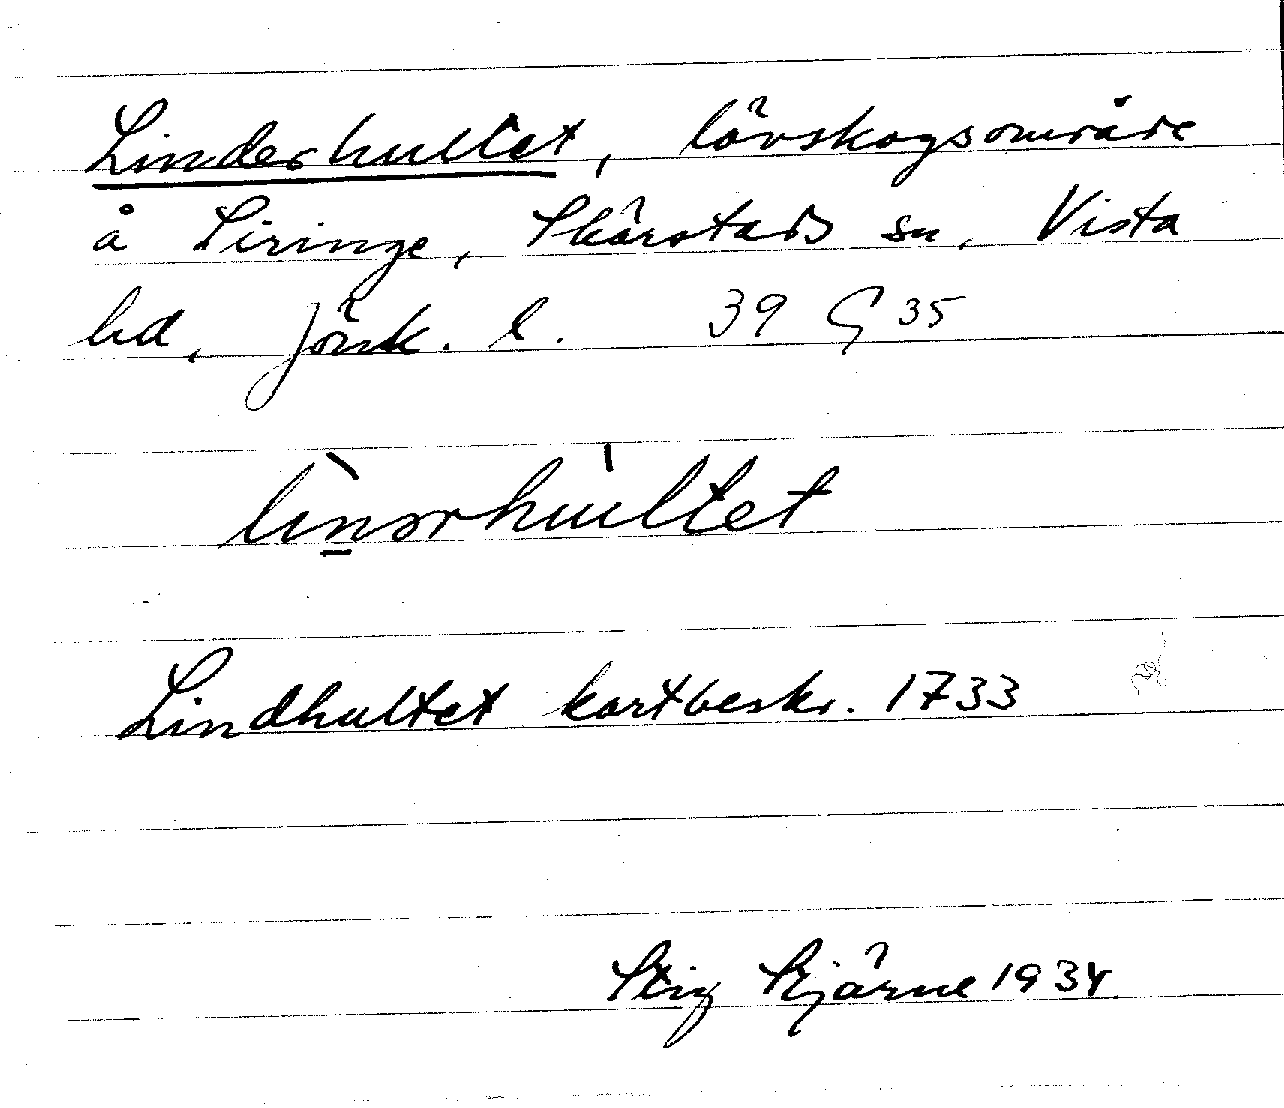 Linderhultet, lövskogsområde
å Siringe, Skärstads sn, Vista
hd, Jönk. l. 39 G 35
lìnərhúltet
Lindhultet kartbeskr. 1733
Stig Bjärne 1934